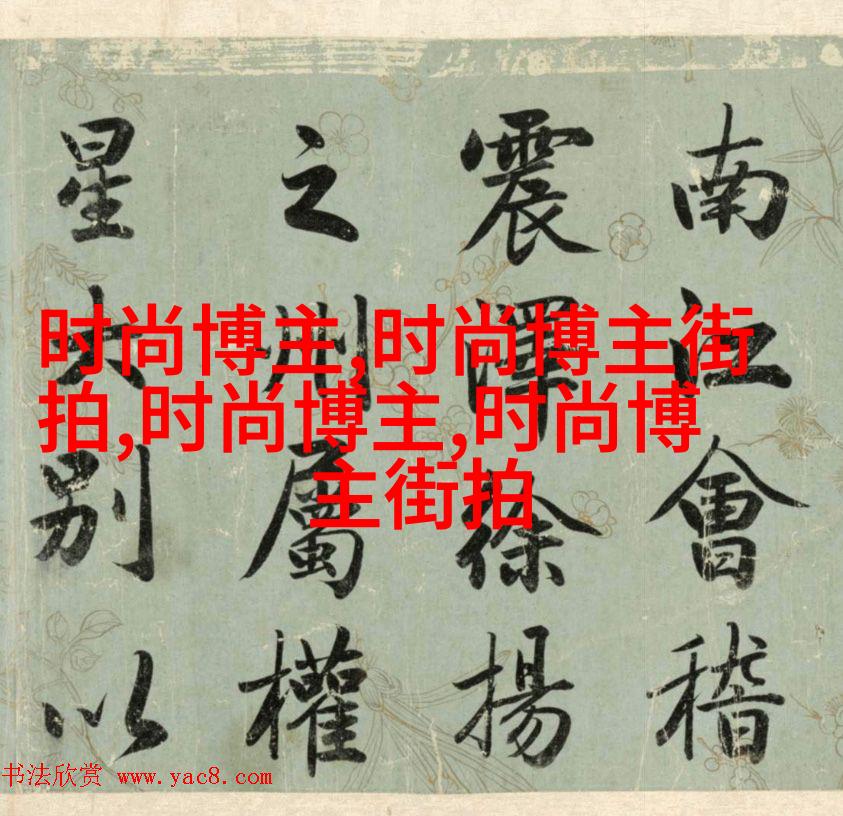 南江會稽
震澤徐揚
之州屬權
星大別以
时尚博主,时尚博主街
拍,时尚博主,时尚博
主街拍
书法欣赏 www.yac8.com